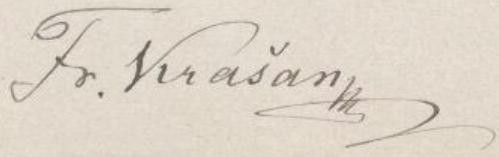 Fr. Krašan